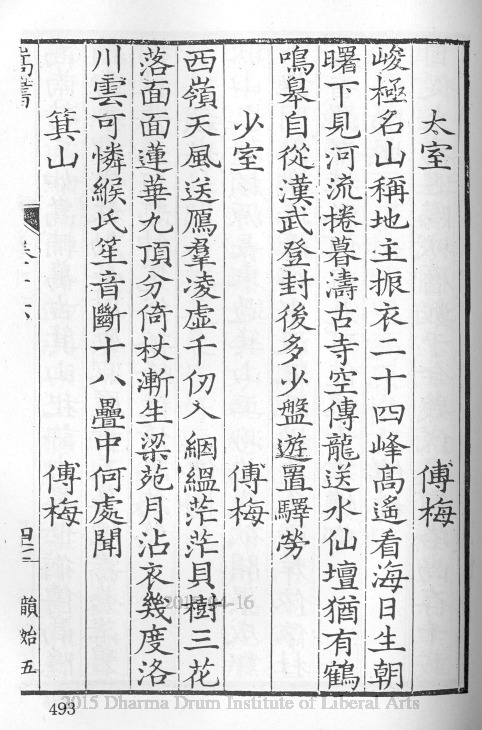 太室　傅梅
峻極名山稱地主振衣二十四峰髙遙看海日生朝
曙下見河流捲暮濤古寺空傳龍送水仙壇猶有鶴
鳴皋自從漢武登封後多少盤遊置驛勞
少室　傅梅
西嶺天風送鴈羣凌虛千仞入絪縕茫茫貝樹三花
落面面蓮華九頂分倚杖漸生梁苑月沾衣幾度洛
川雲可憐緱氏笙音斷十八疊中何處聞
箕山　傅梅
嵩書
韻始五
493
2015 Dharma Drum Institute of Liberal Arts